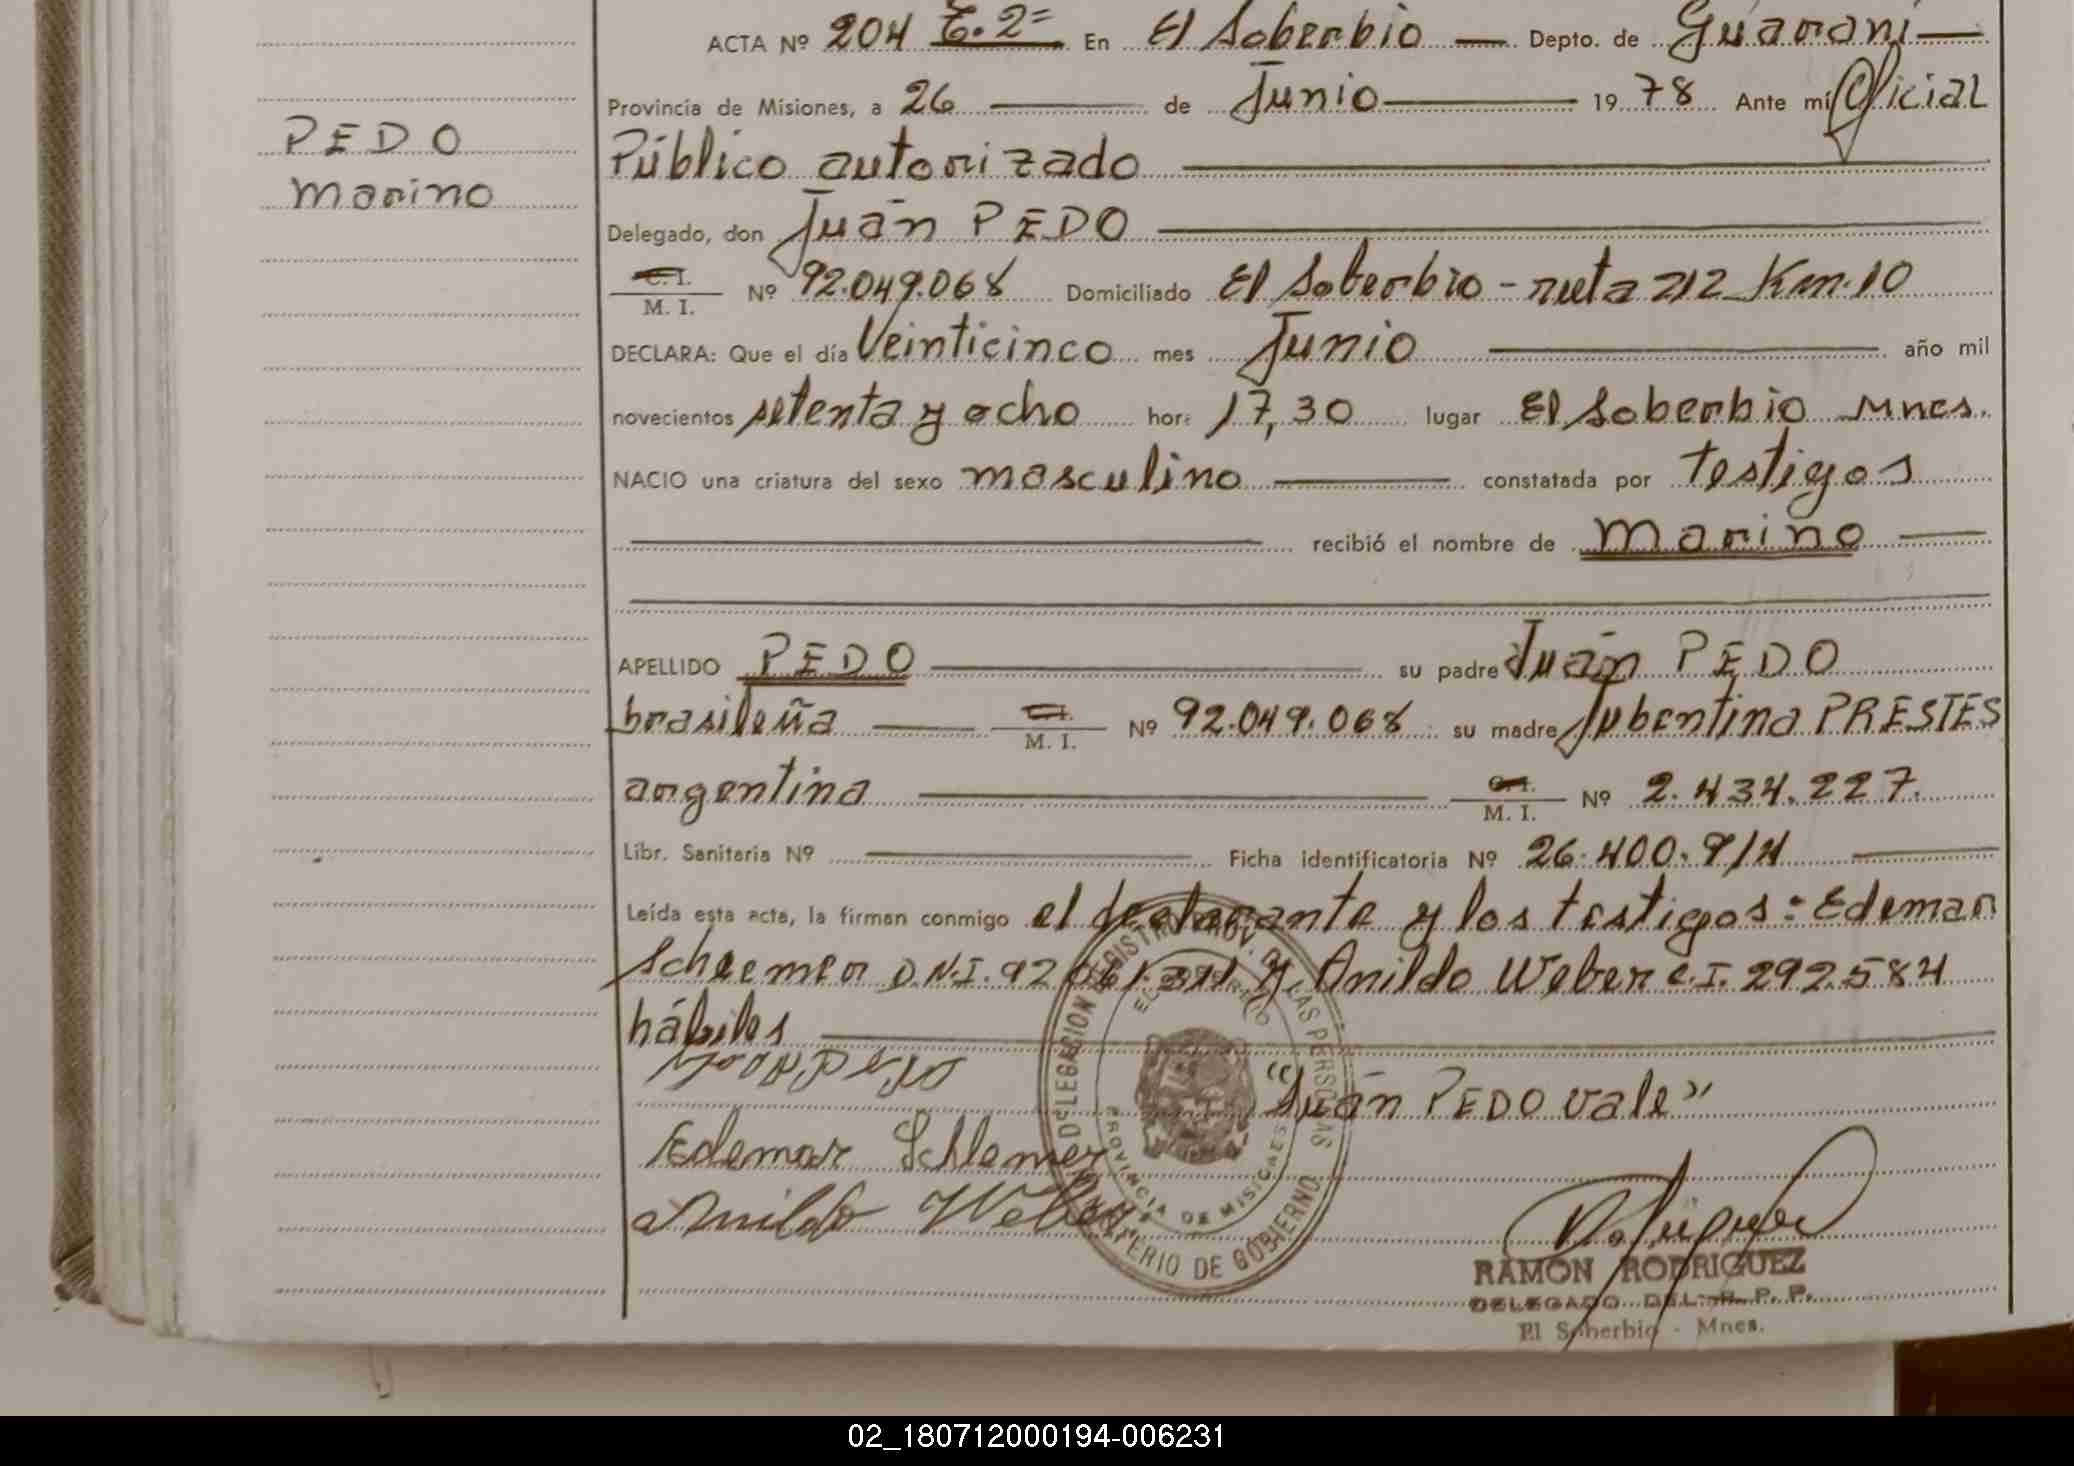 ACTA Nº 204 T. 2= En El Soberbio Depto. de Guaraní
Provincia de Misiones, a 26 de Junio 1978 Ante mí Oficial
PEDO
Marino
Público autorizado
Delegado, don Juan PEDO
C. I.
M. I. Nº 92.049.068 Domiciliado El Soberbio - ruta 212 Km. 10
DECLARA: Que el día Veinticinco mes Junio año mil
novecientos setenta y ocho hora 17,30 lugar El Soberbio Mnes.
NACIO una criatura del sexo masculino constatada por testigos
recibió el nombre de Marino
APELLIDO PEDO su padre Juan PEDO
brasileña C.I.
M. I. Nº 92.049.068 su madre Jubentina PRESTES
argentina C.I.
M. I. Nº 2.434.227.
Libr. Sanitaria Nº Ficha identificatoria Nº 26.400.914
Leída esta acta, la firman conmigo el declarante y los testigos: Edemar
D.N.I. 92.061.311 y Anildo Weber C.I. 292.584
hábiles
"Juan PEDO vale"
Edemar Schlemer
Anildo Weber
DELEGACION REGISTRO PROV. DE LAS PERSONAS
EL SOBERBIO
PROVINCIA DE MISIONES
MINISTERIO DE GOBIERNO
RAMON RODRIGUEZ
DELEGADO DEL R. P. P.
El Soberbio - Mnes.
02_180712000194-006231